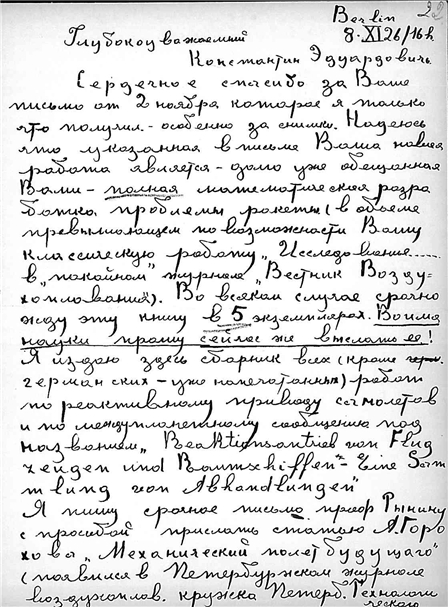 Berlin
8·XI 26/16h
Глубокоуважаемый
Константин Эдуардович.
Сердечное спасибо за Ваше
письмо от 2 ноября которое я только
что получил - особенно за снимки. Надеюсь
что указанная в письме Ваша новая
работа является - давно уже обещанная
Вами - полная математическая разра
ботка проблемы ракеты (в объеме
превышающем по возможности Вашу
классическую работу „Исследование.....
в „покойном" журнале „Вестник Возду=
хоплавания"). Во всяком случае срочно
жду эту книгу в 5 экземплярах. Во имя
науки прошу сейчас же выслать ее!
Я издаю здесь сборник всех (кроме
германских - уже напечатанных) работ
по реактивному приводу самолетов
и по междупланетному сообщению под
названием „Reaktionsantrieb von Flug
zeugen und Raumschiffen" - „Eine Samm
mlung von Abhandlungen"
Я пишу срочное письмо проф Рынину
с просьбой прислать статью А. Горо
хова „Механический полет будущаго"
(появился в Петербургском журнале
воздухоплав. кружка Петерб. Технологи
ческаго